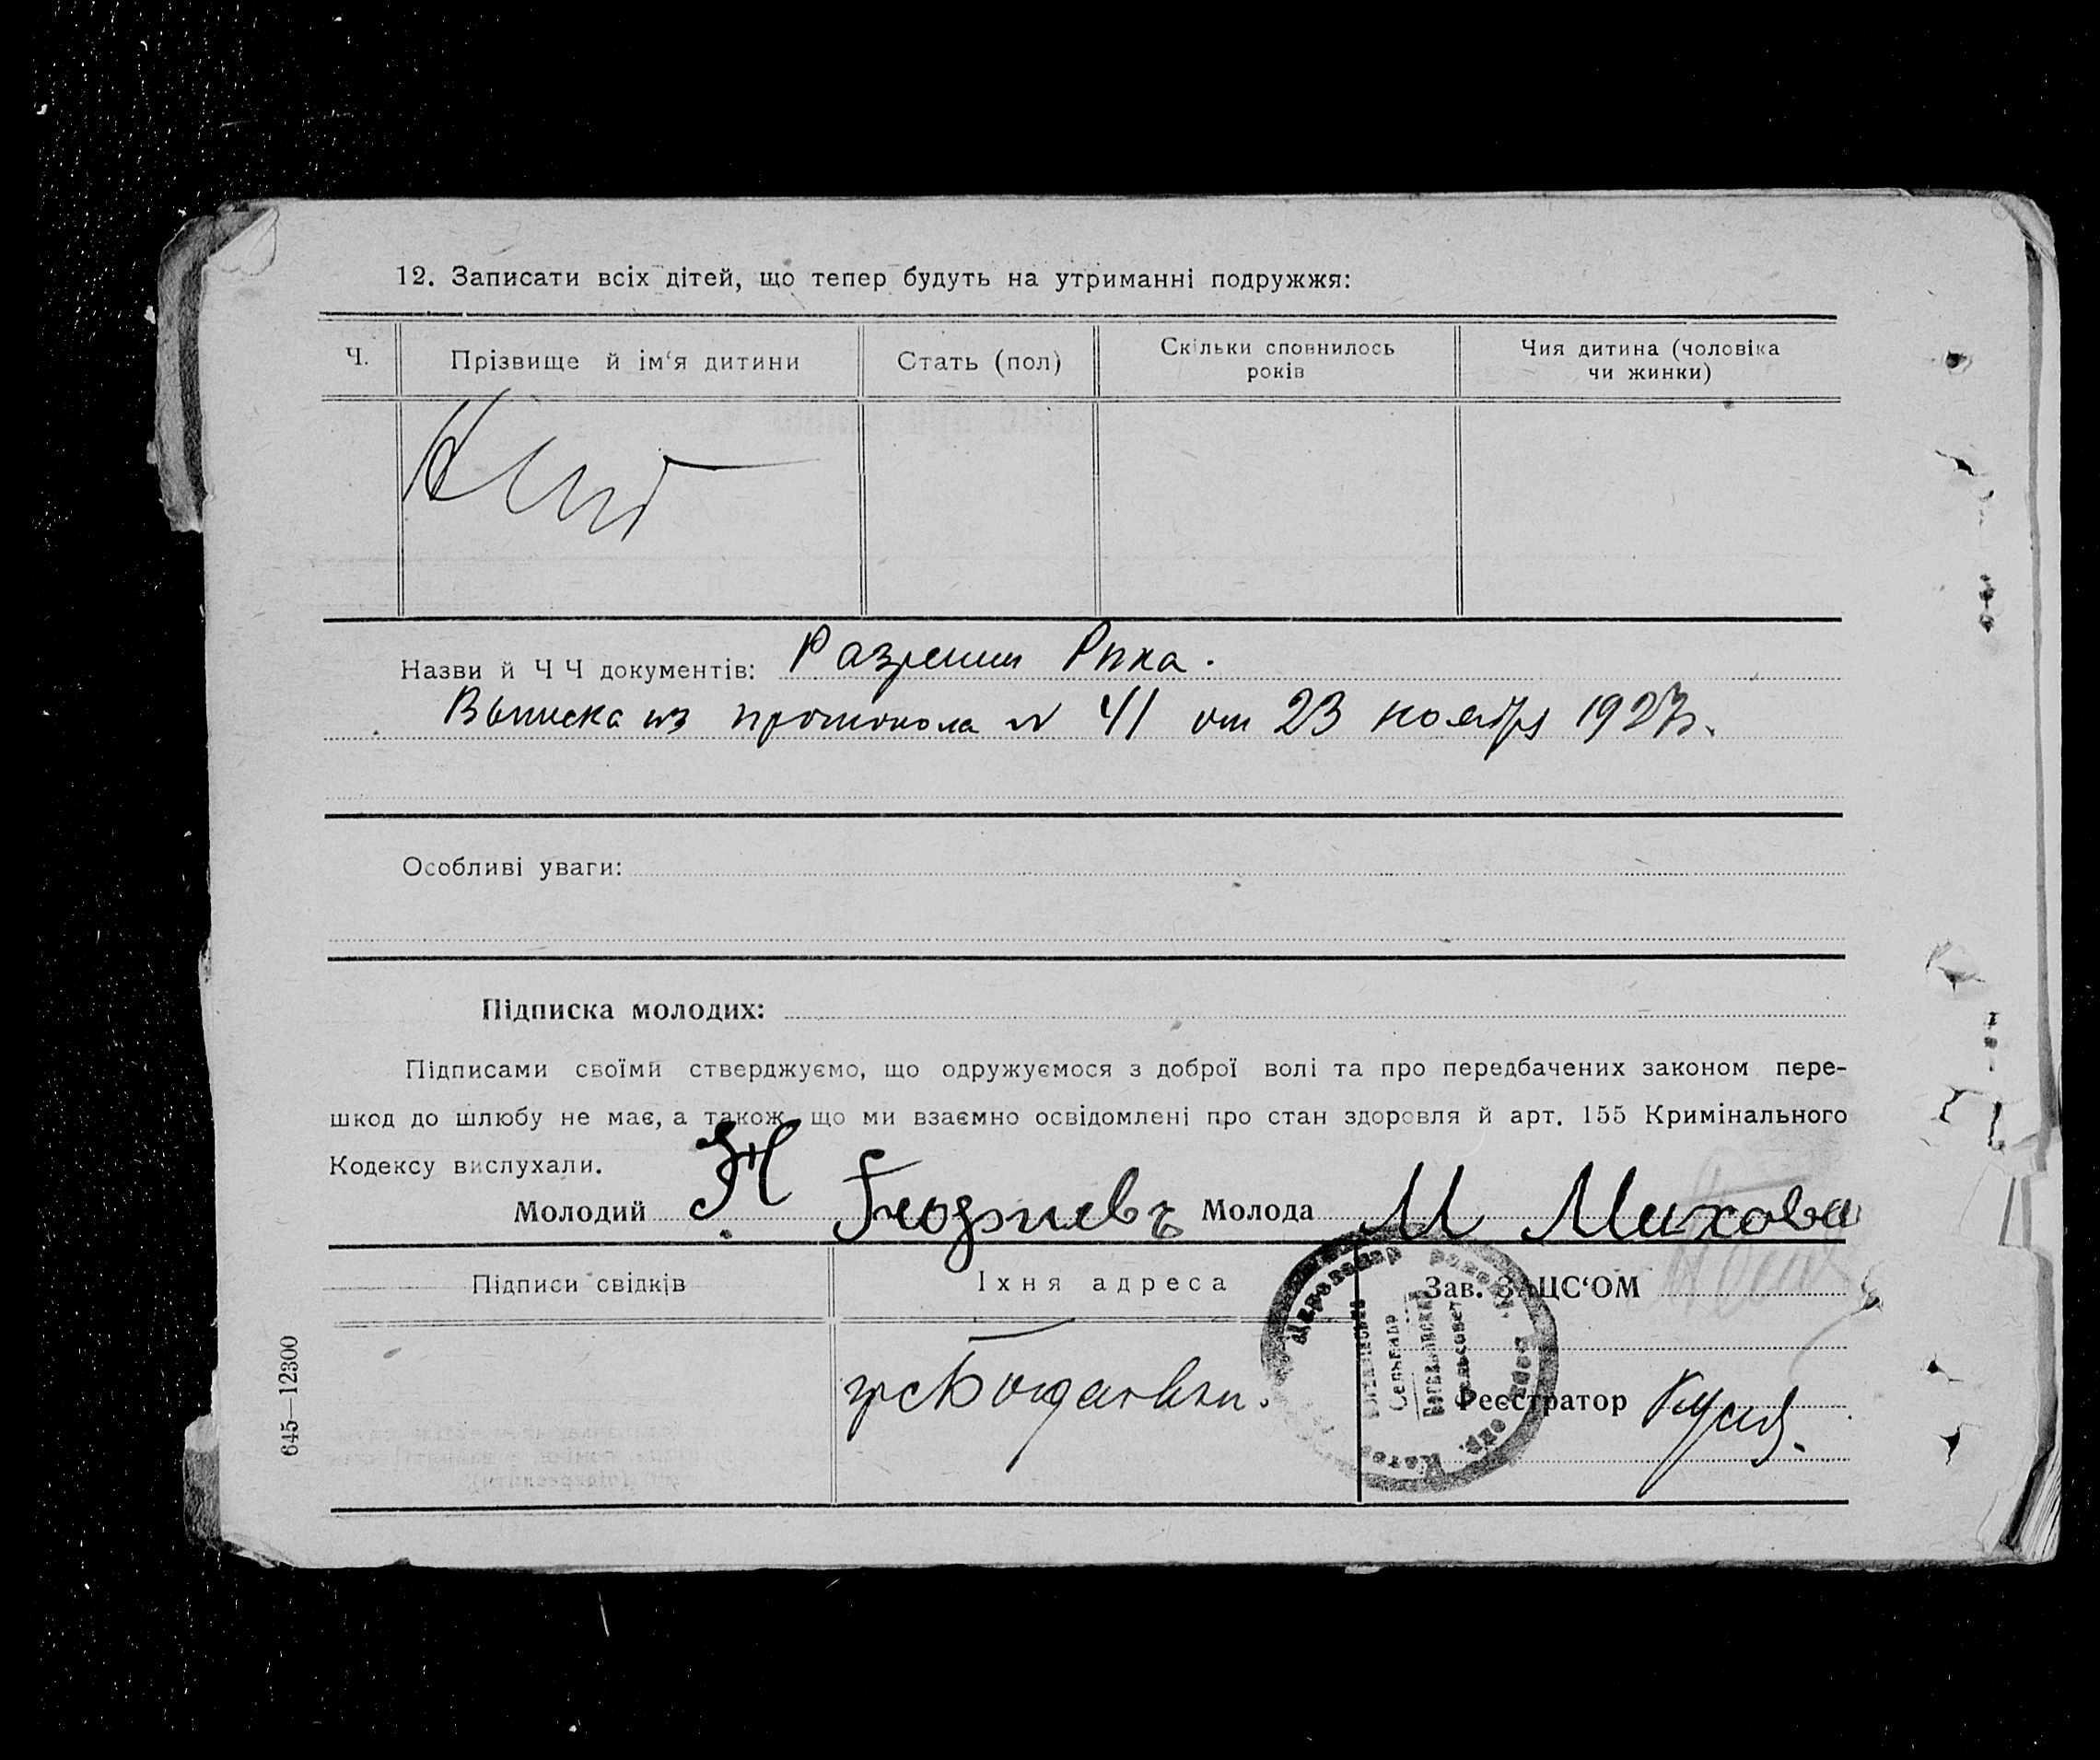 12. Записати всіх дітей, що тепер будуть на утриманні подружжя:
Ч. Прізвище й ім‘я дитини Стать (пол) Скільки сповнилось років Чия дитина (чоловіка чи жинки)
Назви й Ч Ч документів: Разреши Рика.
Выписка из протокола № 41 от 23 ноября 1927г.
Особливі уваги:
Підписка молодих:
Підписами своїми стверджуємо, що одружуємося з доброї волі та про передбачених законом пере-
шкод до шлюбу не має, а також, що ми взаємно освідомлені про стан здоровля й арт. 155 Кримінального
Кодексу вислухали.
Молодий Георгиевъ Молода М Михова
Підписи свідків Їхня адреса Зав. ЗАЦС‘ОМ
Реєстратор
645—12300